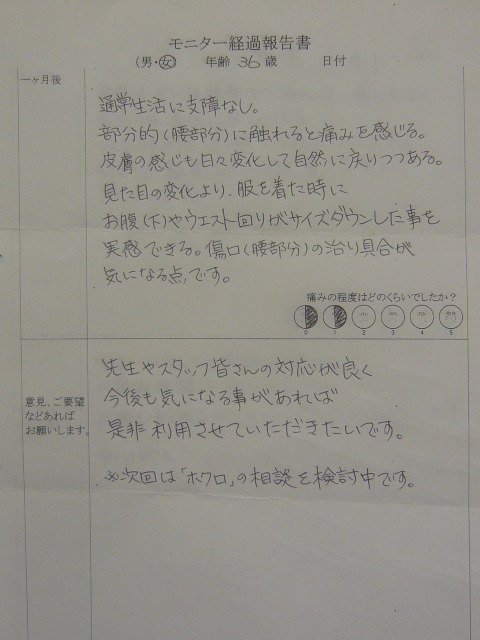 モニター経過報告書
(男・女) 年齢 36 歳 日付
一ヶ月後
通常生活に支障なし。
部分的(腰部分)に触れると痛みを感じる。
皮膚の感じも日々変化して自然に戻りつつある。
見た目の変化より、服を着た時に
お腹(下)やウエスト回りがサイズダウンした事を
実感できる。傷口(腰部分)の治り具合が
気になる点です。
痛みの程度はどのくらいでしたか?
0 1 2 3 4 5
意見、ご要望
などあれば
お願いします。
先生やスタッフ皆さんの対応が良く
今後も気になる事があれば
是非利用させていただきたいです。
※次回は「ホクロ」の相談を検討中です。